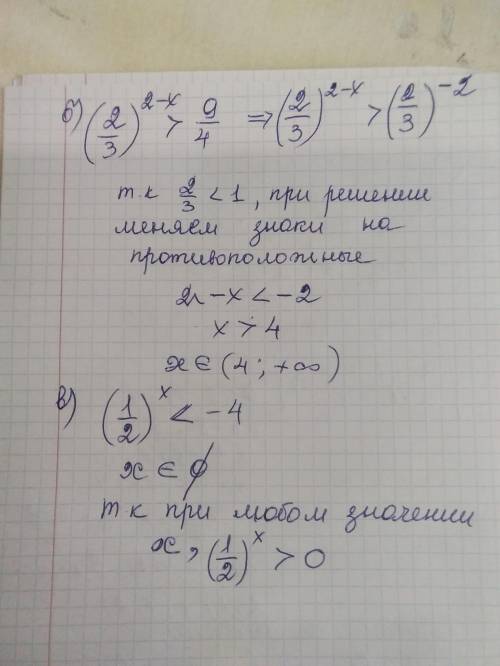 б) (2/3)^(2-x) > 9/4 ⇒ (2/3)^(2-x) > (2/3)^(-2)
т.к 2/3 < 1, при решении
меняем знаки на
противоположные
2 - x < -2
x > 4
x ∈ (4; +∞)
в) (1/2)^x < -4
x ∈ ∅
т к при любом значении
x, (1/2)^x > 0